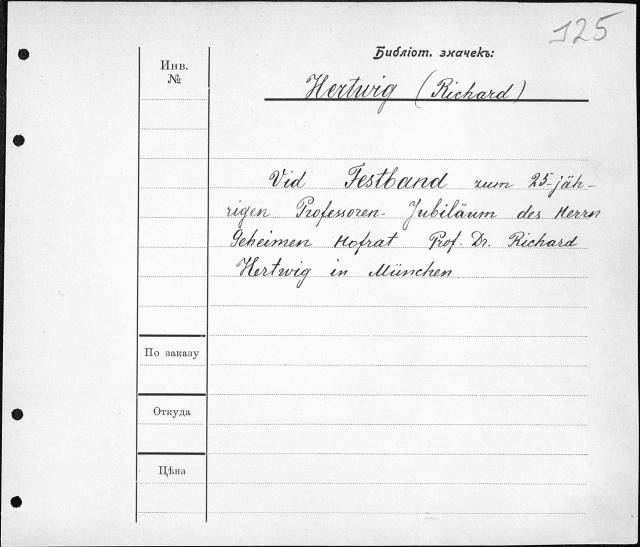 125
Библіот. значекъ:
Инв.
№
Hertwig (Richard)
Vid Festband zum 25-jäh-
rigen Professoren-Jubiläum des Herrn
Geheimen Hofrat Prof. Dr. Richard
Hertwig in München
По заказу
Откуда
Цѣна